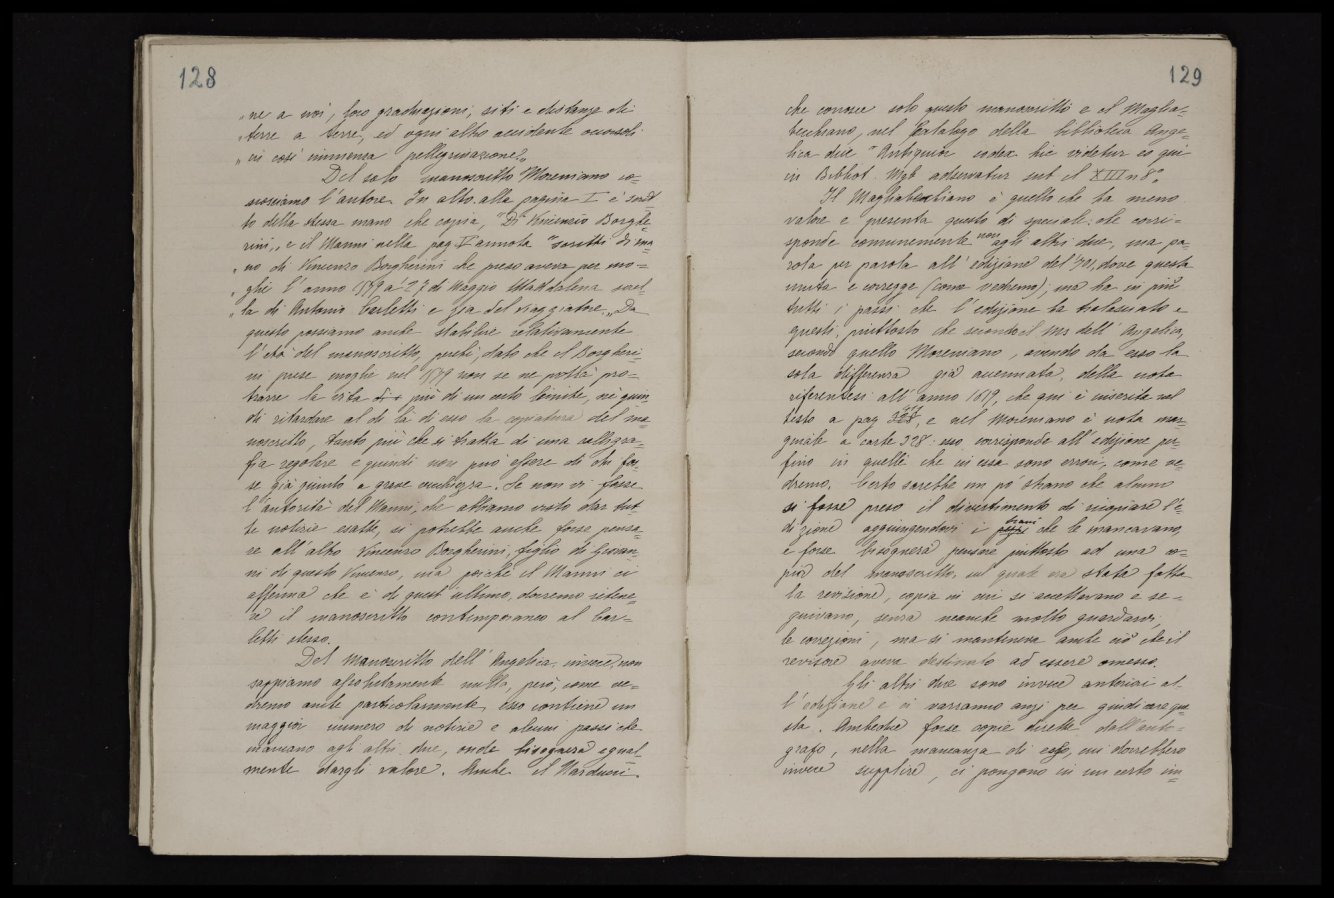 128
„ ne a noi, loro graduazioni, siti e distanze di
„ terre a terre, ed ogni altro accidente
„ in così immensa pellegrinazione„
Del solo manoscritto Moreniano co-
nosciamo l'autore. In alto alla pagina I è scrit
to della stessa mano che copia, "Di Vincenzio Borghe
rini„ e il Manni nella pag V annota "scritto di ma
„ no di Vincenzo Borgherini che preso aveva per mo=
„ glie l'anno 1579 a' 27 di Maggio Maddalena sorel
„ la di Antonio Carletti e zia del viaggiatore„ Da
questo possiamo anche stabilire relativamente
l'età del manoscritto, perchè, dato che il Borgheri
ni prese moglie nel 1579 non se ne potrà pro=
trarre la vita più di un certo limite, nè quin
di ritardare al di là di esso la copiatura del ma
noscritto, tanto più che si tratta di una calligra
fia regolare e quindi non può essere di chi fos
se già giunto a grave vecchiezza. Se non vi fosse
l'autorità del Manni, che abbiamo visto dar tut
te notizie esatte, si potrebbe anche forse pensa
re all'altro Vincenzo Borgherini, figlio di Giovan
ni di questo Vincenzo, ma poichè il Manni ci
afferma che è di quest'ultimo, dovremo ritene
re il manoscritto contemporaneo al Car=
letti stesso.
Del manoscritto dell'Angelica, invece, non
sappiamo assolutamente nulla, però, come ve=
dremo anche particolarmente, esso contiene un
maggior numero di notizie e alcuni passi che
mancano agli altri due, onde bisognerà egual
mente dargli valore. Anche il Narducci
129
che conosce solo questo manoscritto e il Maglia=
bechiano, nel Catalogo della biblioteca Ange=
lica dice "Antiquior codex hic videtur eo qui
in Bibliot. Mgb adservatur sub cl XIII n 8„
Il Magliabechiano è quello che ha meno
valore e presenta questo di speciale che corri=
sponde comunemente non agli altri due, ma pa=
rola per parola all'edizione del 701, dove questa
muta e corregge (come vedremo), ma ha in più
tutti i passi che l'edizione ha tralasciato e
questi, piuttosto che secondo il ms dell'Angelica,
secondo quello Moreniano, avendo da esso la
sola differenza già accennata, della nota
riferentesi all'anno 1619, che qui è inserita nel
testo a pag , e nel Moreniano è nota mar
ginale a carte 328. esso corrisponde all'edizione per
fino in quelli che in essa sono errori, come ve
dremo. Certo sarebbe un po' strano che alcuno
si fosse preso il divertimento di ricopiare l'e
dizione aggiungendovi i brani che le mancavano,
e forse bisognerà pensare piuttosto ad una co=
pia del manoscritto, sul quale era stata fatta
la revisione, copia in cui si accettavano e se=
guivano, senza neanche molto guardarvi,
le correzioni, ma si manteneva anche ciò che il
revisore aveva destinato ad essere omesso.
Gli altri due sono invece anteriori al-
l'edizione e ci varranno anzi per giudicare que
sta. Ambedue forse copie dirette dall'auto=
grafo, nella mancanza di esso, cui dovrebbero
invece supplire, ci pongono in un certo im=